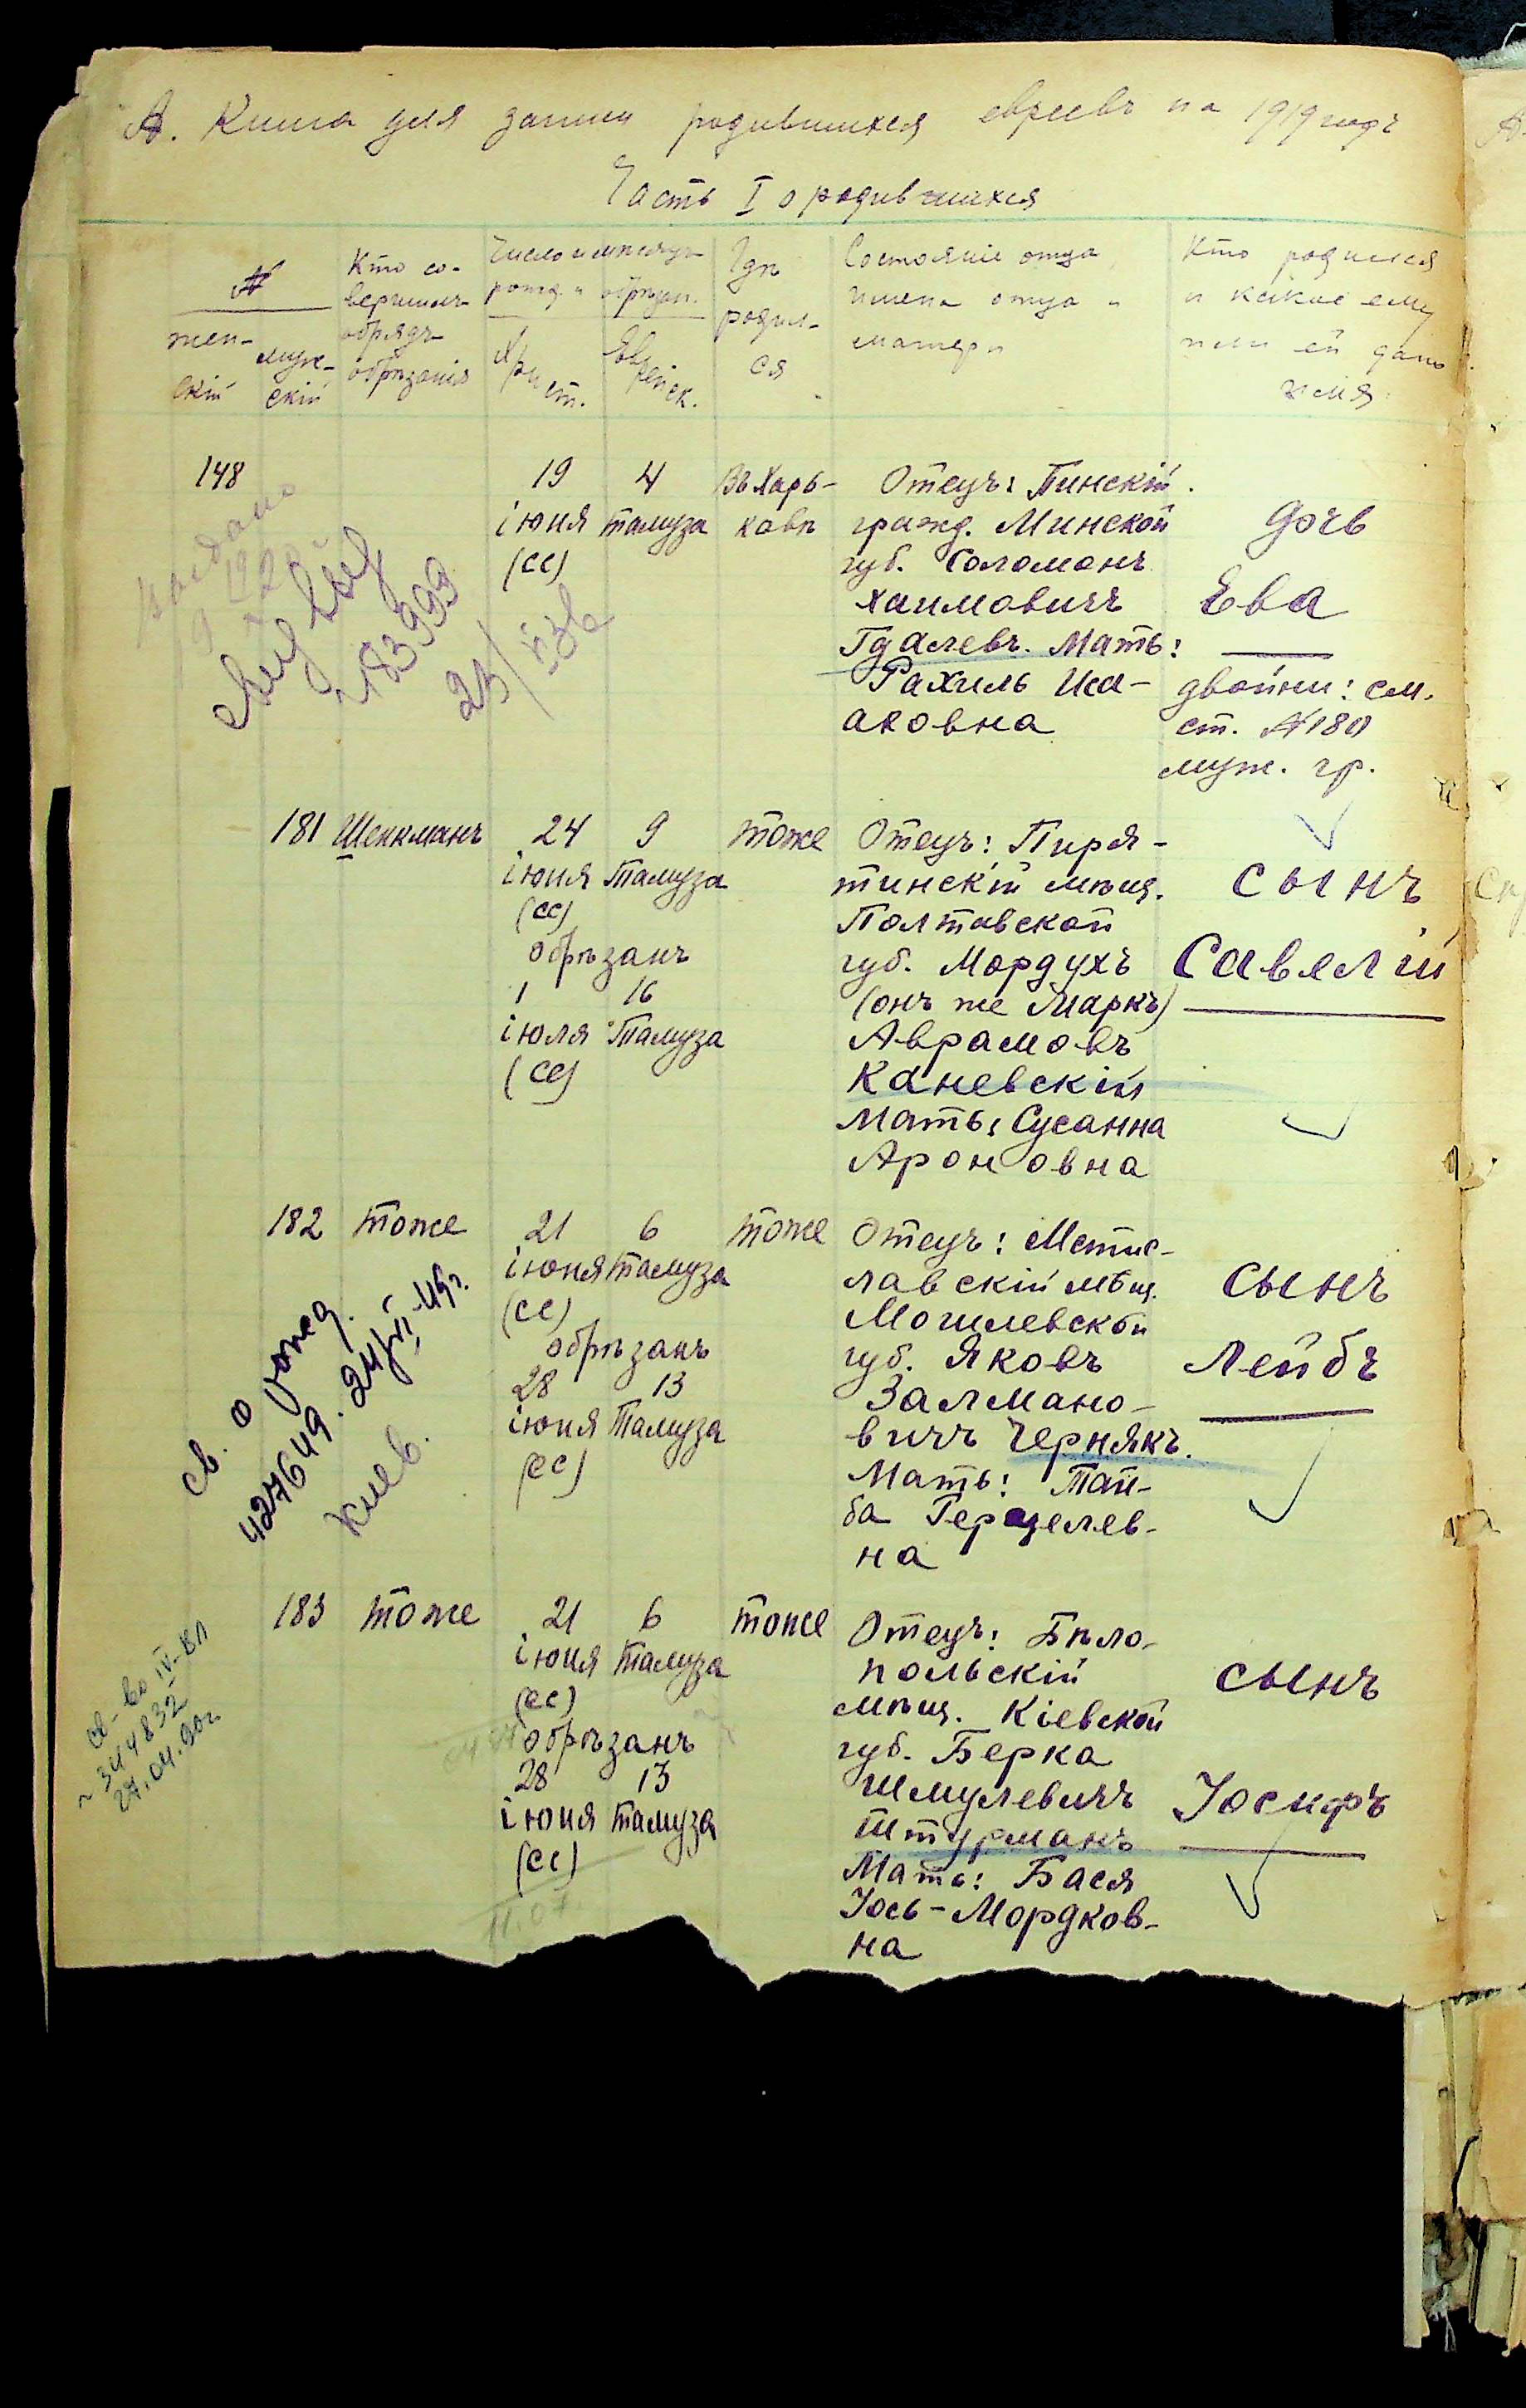 А. Книга для записи родившихся евреевъ на 1919 годъ
Часть I о родившихся
№
жен-
скій
муж-
скій
Кто со-
вершилъ
обрядъ
обрѣзанія
Число и мѣсяцъ
рожд. и обрѣзан.
Христ.
Еврейск.
Гдѣ
родил-
ся
Состояніе отца
имена отца и
матери
Кто родился
и какое ему
или ей дано
имя
148
19 4
іюня тамуза
(СС)
Въ Харь-
ковѣ
Отецъ: Пинскій
гражд. Минской
губ. Соломонъ
Хаимовичъ
Гдалевъ. Мать:
Рахиль Иса-
аковна
дочь
Ева
двойни: см.
ст. №180
муж. гр.
183999
181 Шенкманъ
24 9
іюня Тамуза
(СС)
обрѣзанъ
1 16
іюля Тамуза
(СС)
тоже
Отецъ: Пиря-
тинскій мѣщ.
Полтавской
губ. Мордухъ
(онъ же Маркъ)
Аврамовъ
Каневскій
Мать: Сусанна
Ароновна
сынъ
Савелій
182 тоже
21 6
іюня тамуза
(СС)
обрѣзанъ
28 13
іюня Тамуза
(СС)
тоже
Отецъ: Мстис-
лавскій мѣщ.
Могилевской
губ. Яковъ
Залмано-
вичъ Чернякъ.
Мать: Тай-
ба Герцелев-
на
сынъ
Лейбъ
св. о рожд.
427649. 24/VII-49г.
Киев.
183 тоже
21 6
іюня тамуза
(СС)
обрѣзанъ
28 13
іюня тамуза
(СС)
11.07.
тоже
Отецъ: Бѣло-
польскій
мѣщ. Кіевской
губ. Берка
Шмулевичъ
Штурманъ
Мать: Бася
Юсь-Мордков-
на
сынъ
Іосифъ
св-во IV-ВЛ
~ 344832
27.04.90г.